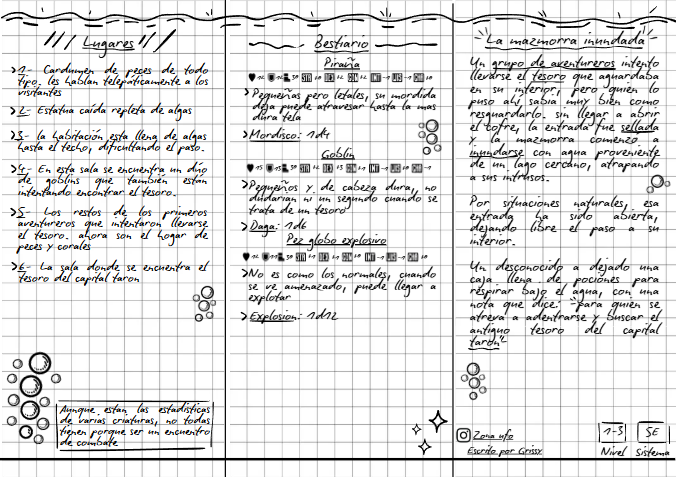 Lugares
>1- Cardumen de peces de todo
tipo. les hablan telepáticamente a los
visitantes
>2- Estatua caída repleta de algas
>3- la habitación esta llena de algas
hasta el techo, dificultando el paso.
>4- En esta sala se encuentra un dúo
de goblins que también están
intentando encontrar el tesoro.
>5- Los restos de los primeros
aventureros que intentaron llevarse
el tesoro. ahora son el hogar de
peces y corales
>6- La sala donde se encuentra el
tesoro del capital taron
Aunque estan las estadísticas
de varias criaturas, no todas
tienen porque ser un encuentro
de combate
Bestiario
Piraña
>Pequeñas pero letales, su mordida
deja puede atravesar hasta la mas
dura tela
>Mordisco: 1d4
Goblin
>Pequeños y de cabeza dura, no
dudarian ni un segundo cuando se
trata de un tesoro
>Daga: 1d6
Pez globo explosivo
>No es como los normales, cuando
se ve amenazado, puede llegar a
explotar
>Explosion: 1d12
La mazmorra inundada
Un grupo de aventureros intento
llevarse el tesoro que aguardaba
en su interior, pero quien lo
puso ahí sabia muy bien como
resguardarlo. sin llegar a abrir
el cofre, la entrada fue sellada
y la mazmorra comenzo a
inundarse con agua proveniente
de un lago cercano, atrapando
a sus intrusos.
Por situaciones naturales, esa
entrada ha sido abierta,
dejando libre el paso a su
interior.
Un desconocido a dejado una
caja llena de pociones para
respirar bajo el agua, con una
nota que dice: "para quien se
atreva a adentrarse y buscar el
antiguo tesoro del capital
taron"
Zona ufo
Escrito por Grissy
1-3
Nivel
SE
Sistema